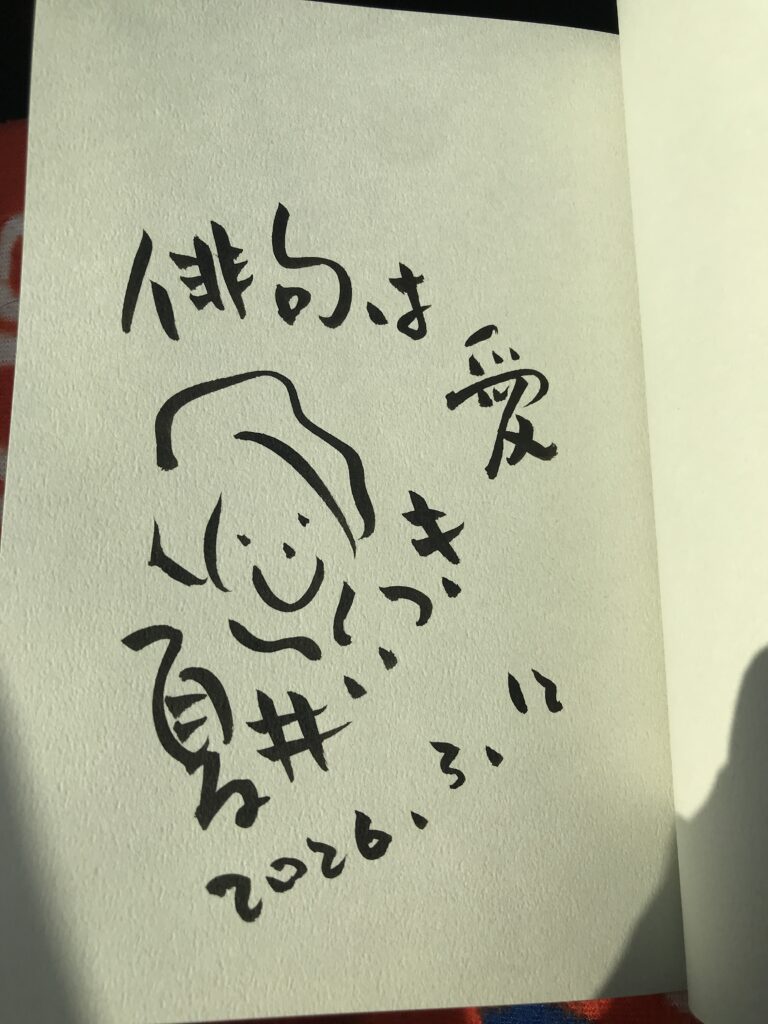 俳句は
愛
夏井いつき
2026.3.12